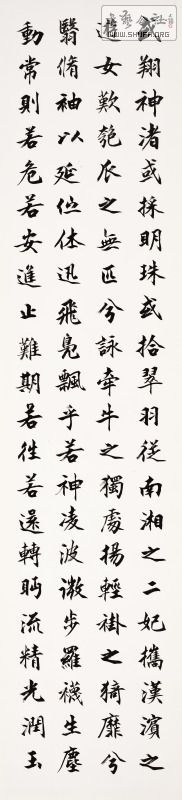 或翔神渚或採明珠或拾翠羽從南湘之二妃攜漢濱之
遊女歎匏瓜之無匹兮詠牽牛之獨處揚輕袿之猗靡兮
翳脩袖以延佇体迅飛鳧飄乎若神凌波微步羅襪生塵
動常則若危若安進止難期若往若還轉眄流精光潤玉